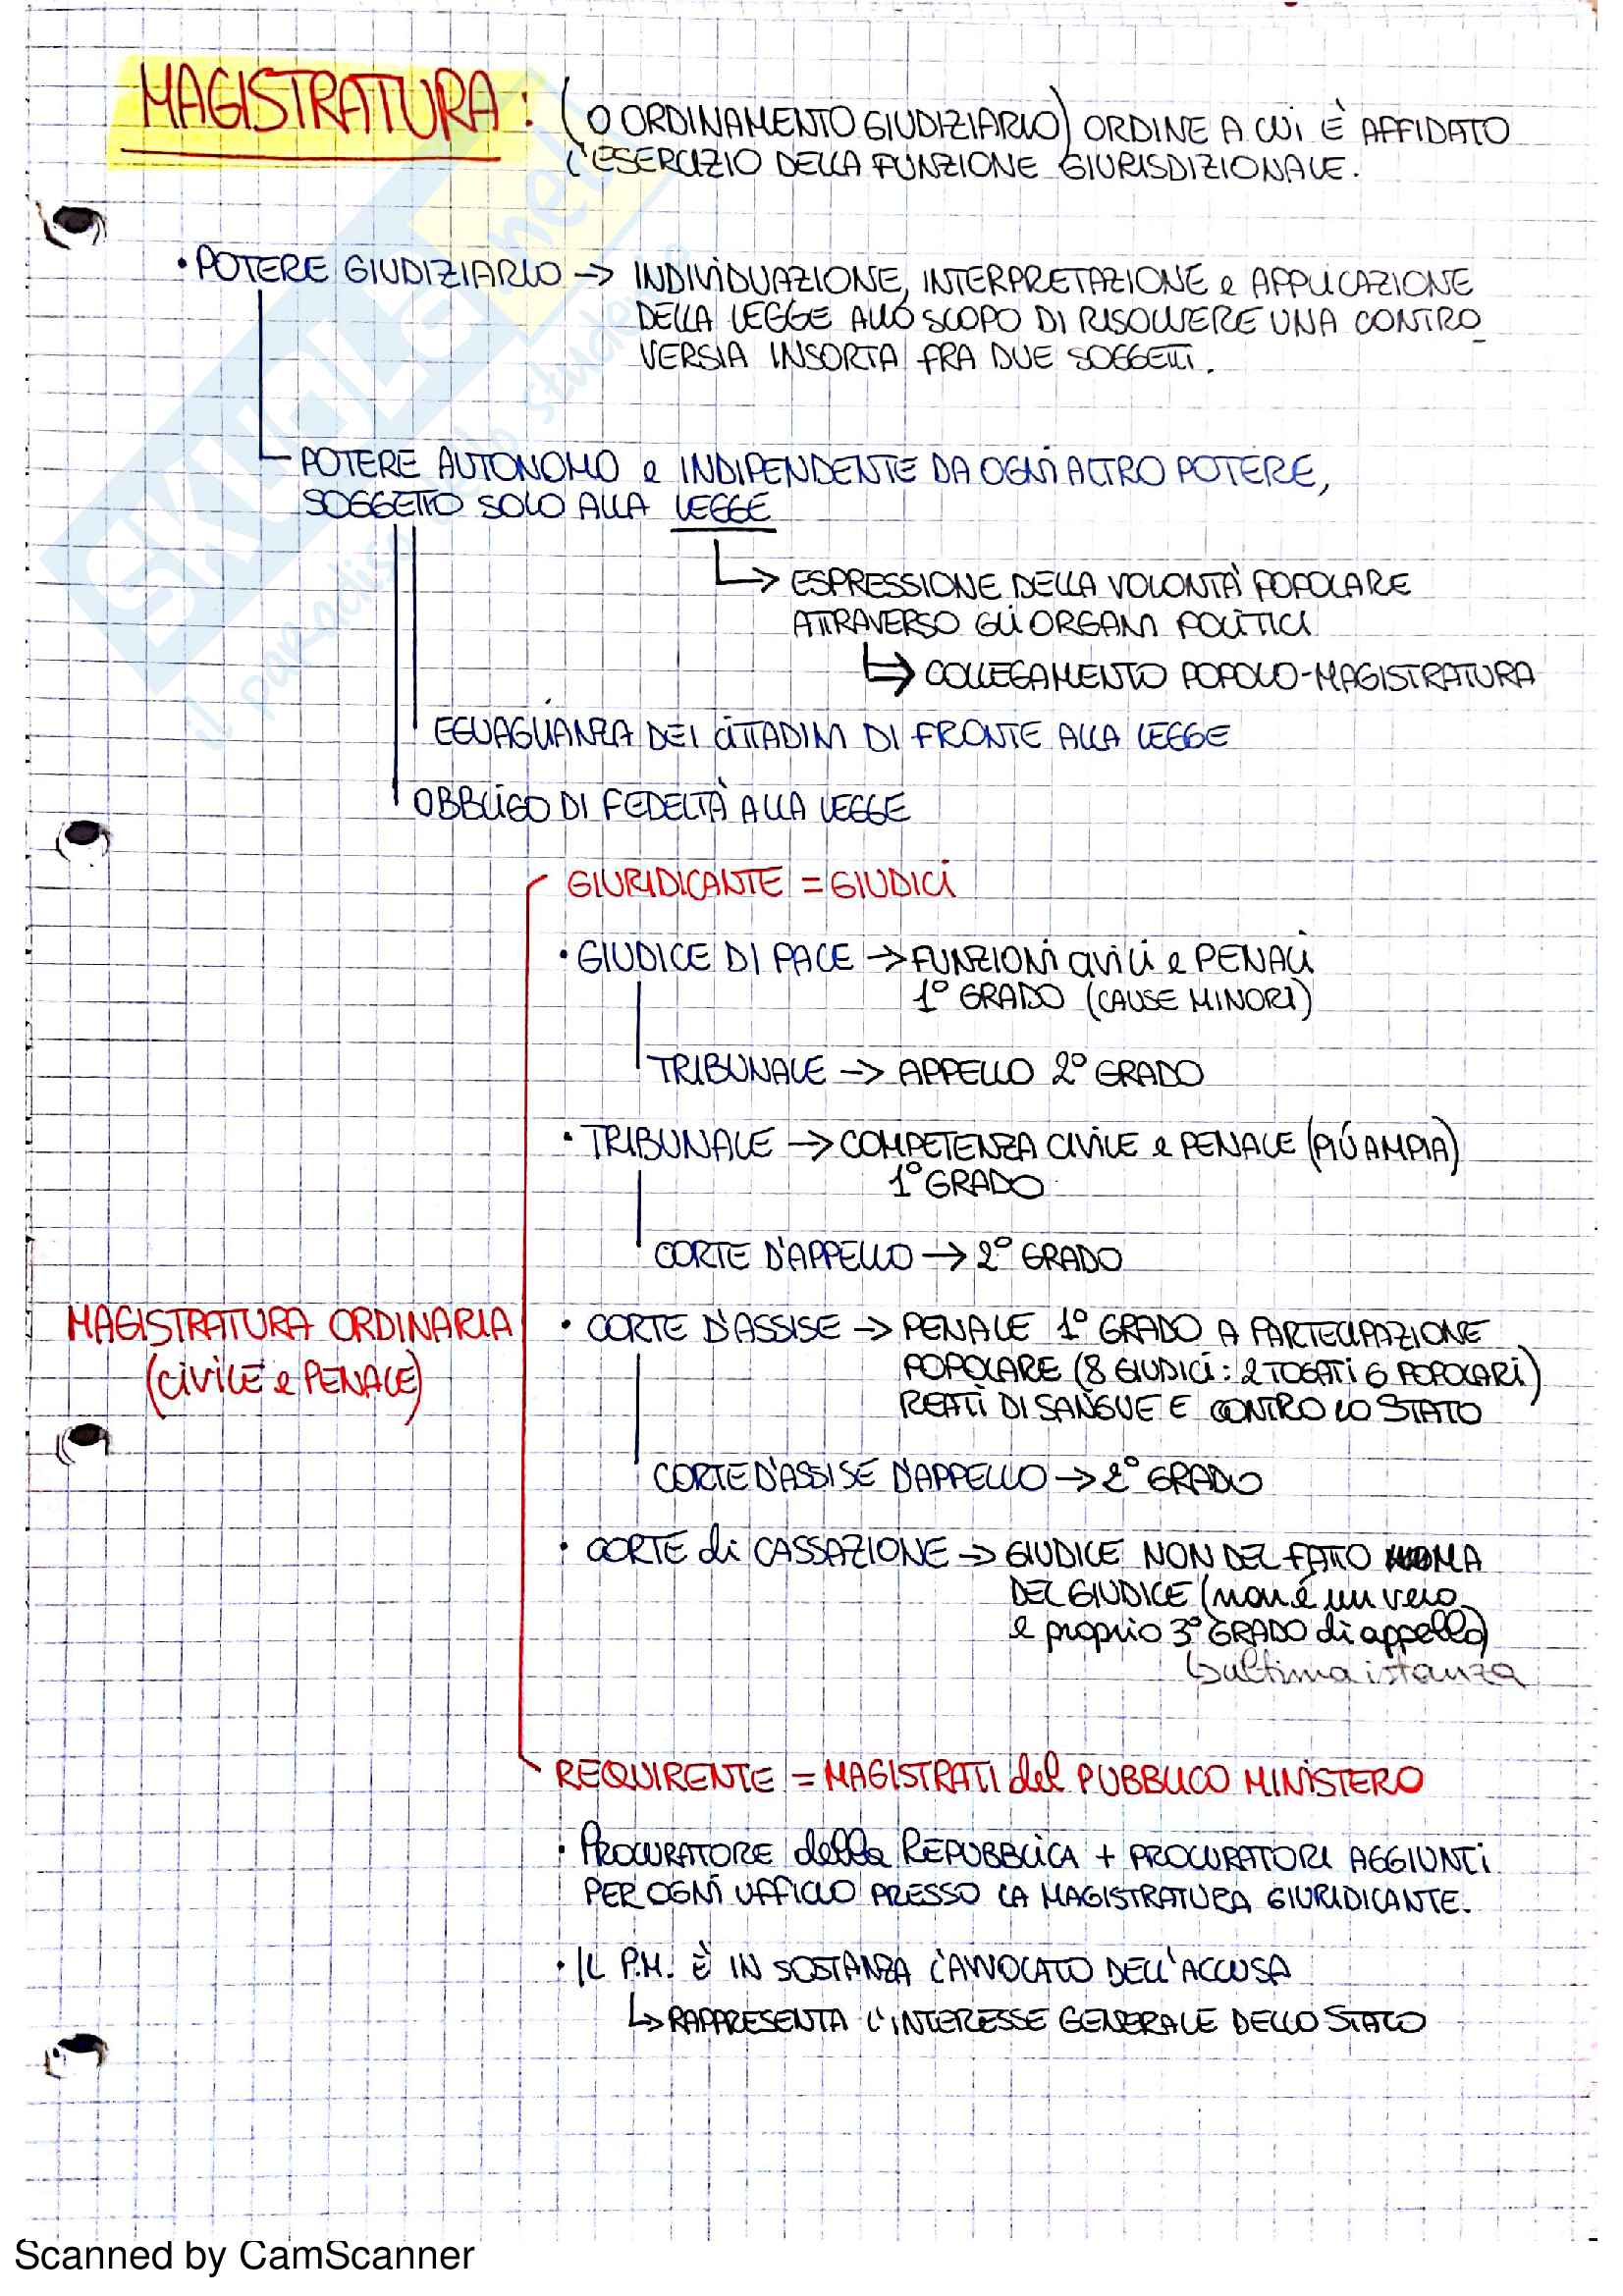 MAGISTRATURA: (O ORDINAMENTO GIUDIZIARIO) ORDINE A CUI È AFFIDATO
L'ESERCIZIO DELLA FUNZIONE GIURISDIZIONALE.
• POTERE GIUDIZIARIO → INDIVIDUAZIONE, INTERPRETAZIONE e APPLICAZIONE
DELLA LEGGE ALLO SCOPO DI RISOLVERE UNA CONTRO_
VERSIA INSORTA FRA DUE SOGGETTI.
POTERE AUTONOMO e INDIPENDENTE DA OGNI ALTRO POTERE,
SOGGETTO SOLO ALLA LEGGE
→ ESPRESSIONE DELLA VOLONTÀ POPOLARE
ATTRAVERSO GLI ORGANI POLITICI
→ COLLEGAMENTO POPOLO-MAGISTRATURA
EGUAGLIANZA DEI CITTADINI DI FRONTE ALLA LEGGE
OBBLIGO DI FEDELTÀ ALLA LEGGE
GIURIDICANTE = GIUDICI
• GIUDICE DI PACE → FUNZIONI CIVILI e PENALI
1° GRADO (CAUSE MINORI)
TRIBUNALE → APPELLO 2° GRADO
• TRIBUNALE → COMPETENZA CIVILE e PENALE (PIÚ AMPIA)
1° GRADO
CORTE D'APPELLO → 2° GRADO
MAGISTRATURA ORDINARIA
(CIVILE e PENALE)
• CORTE D'ASSISE → PENALE 1° GRADO A PARTECIPAZIONE
POPOLARE (8 GIUDICI: 2 TOGATI 6 POPOLARI)
REATI DI SANGUE E CONTRO LO STATO
CORTE D'ASSISE D'APPELLO → 2° GRADO
• CORTE di CASSAZIONE → GIUDICE NON DEL FATTO MA
DEL GIUDICE (non é un vero
e proprio 3° GRADO di appello)
↳ ultima istanza
REQUIRENTE = MAGISTRATI del PUBBLICO MINISTERO
• PROCURATORE della REPUBBLICA + PROCURATORI AGGIUNTI
PER OGNI UFFICIO PRESSO LA MAGISTRATURA GIURIDICANTE.
• IL P.M. È IN SOSTANZA L'AVVOCATO DELL'ACCUSA
↳ RAPPRESENTA L'INTERESSE GENERALE DELLO STATO
SKUOLA.net
il paradiso dello studente
Scanned by CamScanner